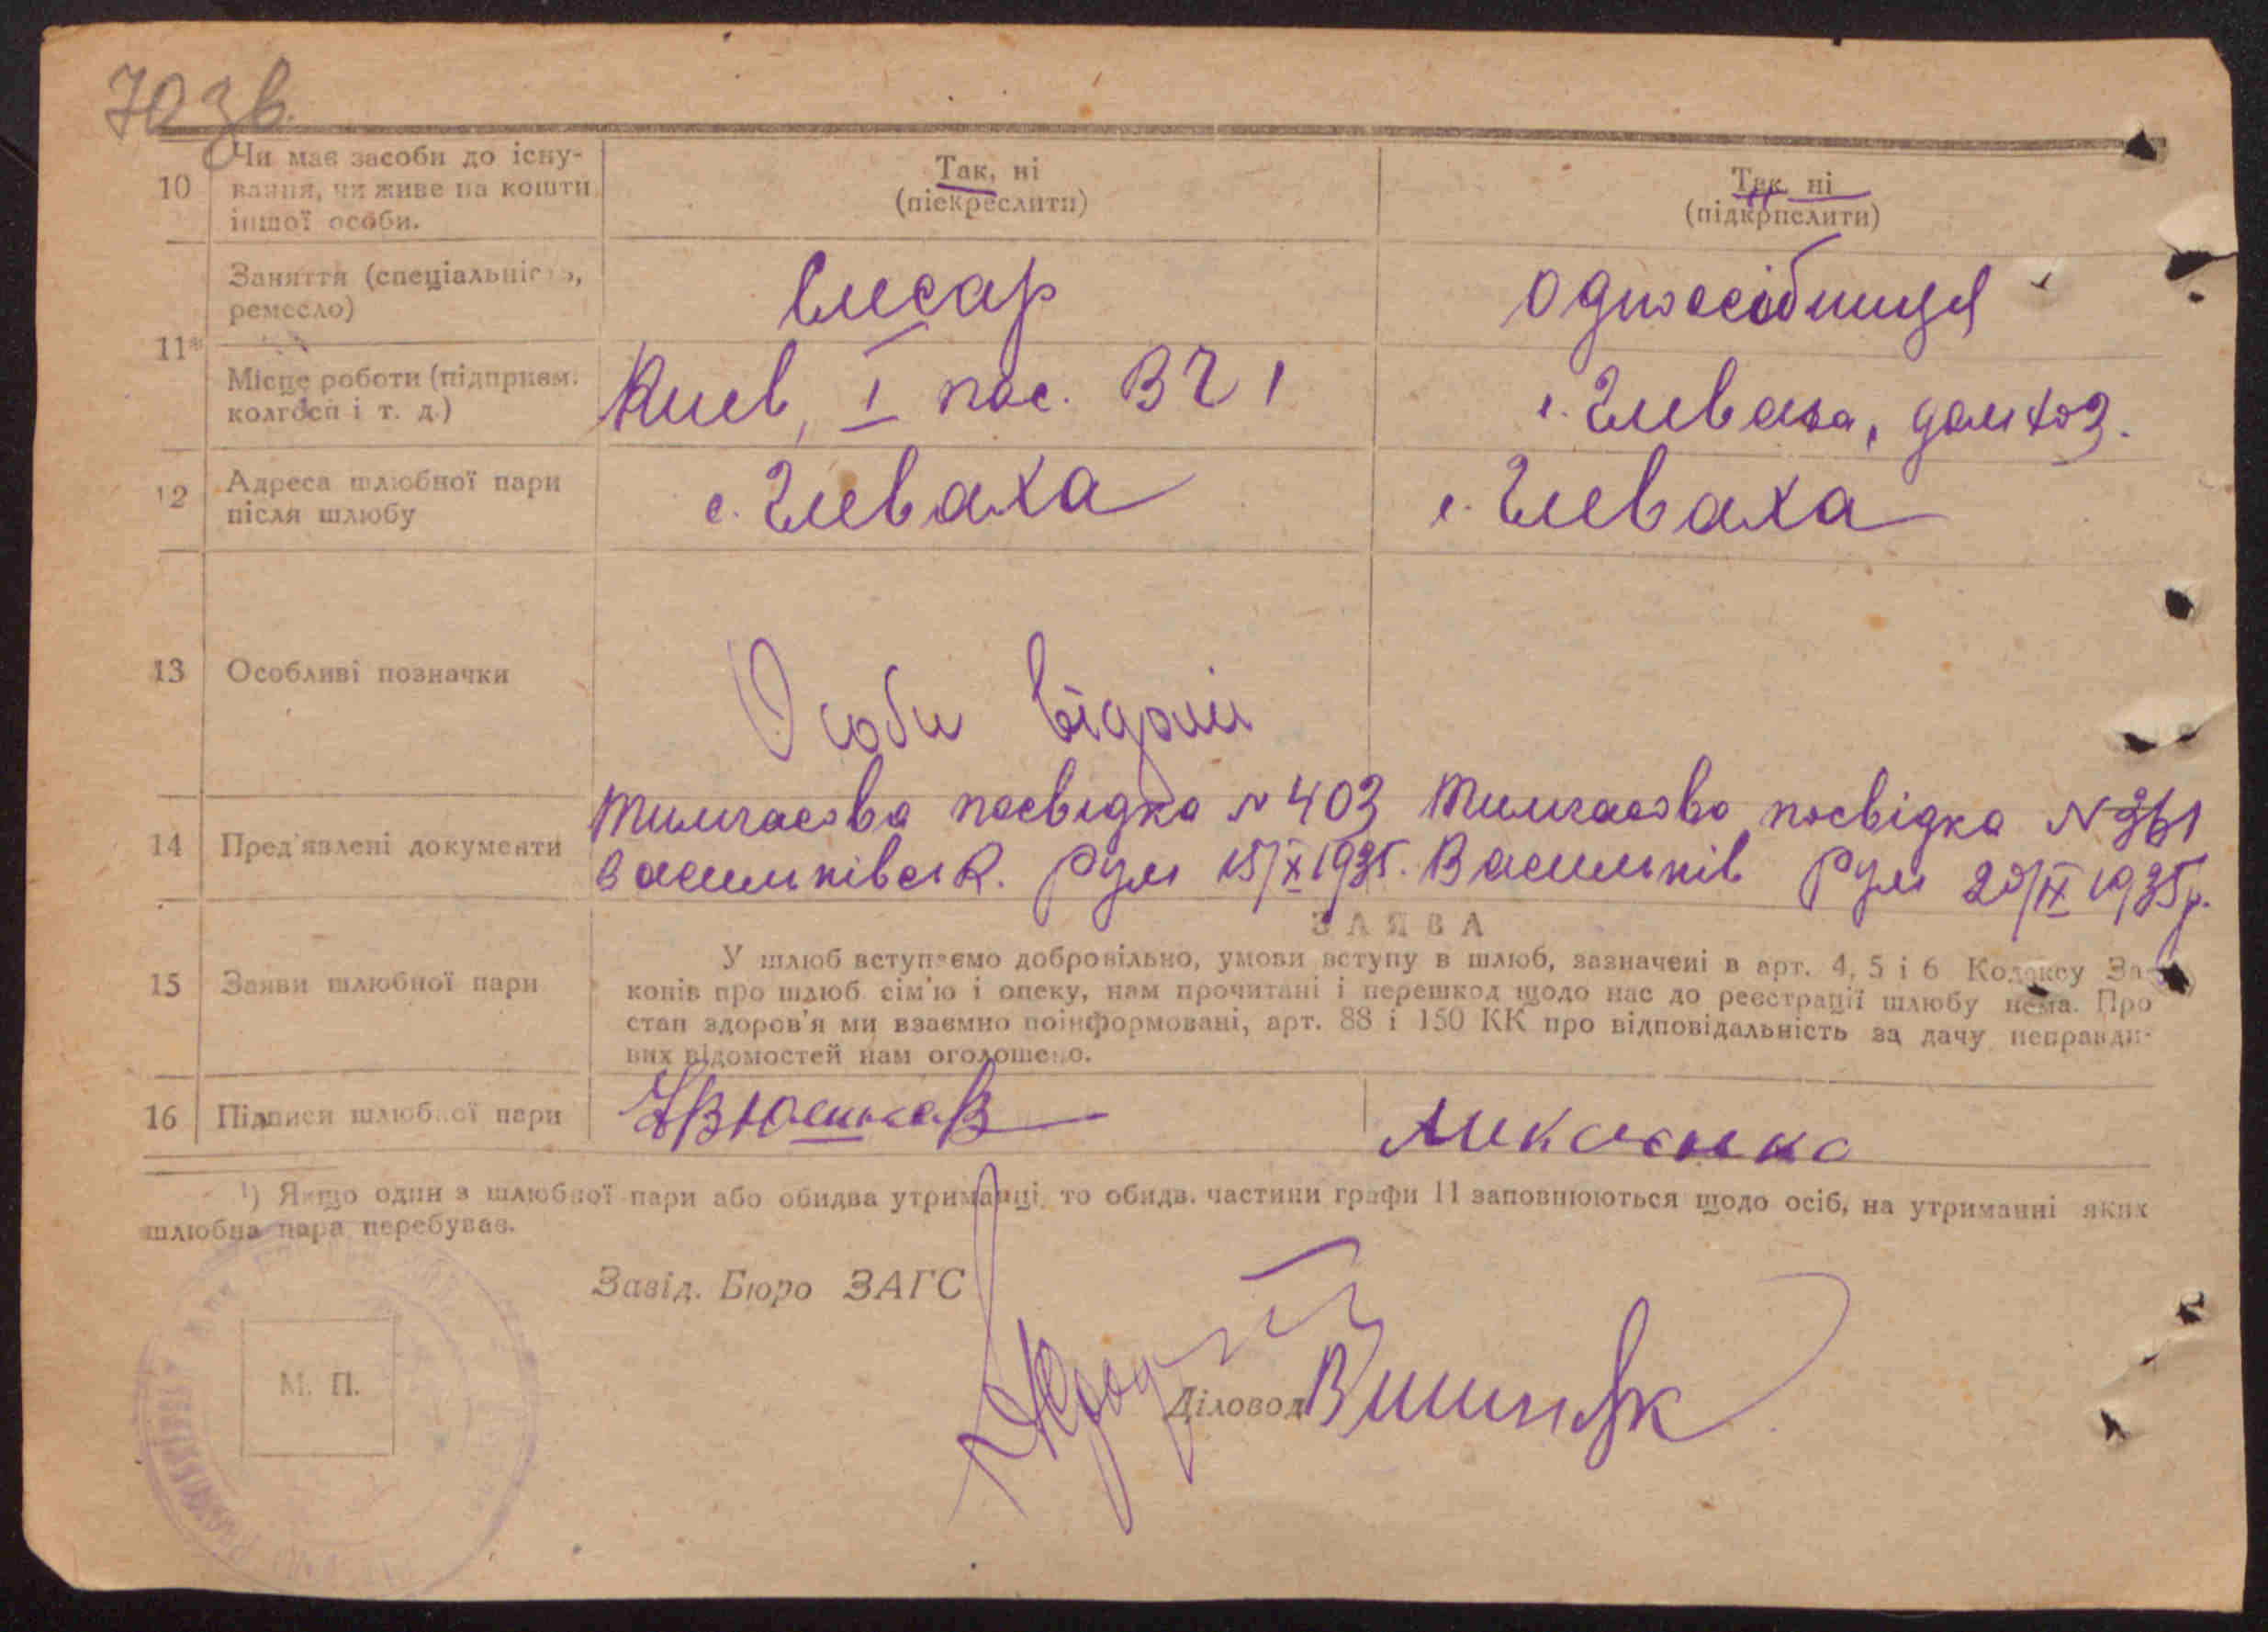 70 зв.
10 Чи має засоби до існу-
вання, чи живе на кошти
іншої особи.
Так, ні
(піекреслити)
Так ні
(підкрпслити)
11
Заняття (спеціальність,
ремесло)
Слесар
Одноосібниця
Місце роботи (підприєм.
колгосп і т. д.)
Киев, I пос.
с. Глеваха, домхоз.
12 Адреса шлюбної пари
після шлюбу
с. Глеваха
с. Глеваха
13 Особливі позначки
Особи відомі
14 Пред'явлені документи
Тимчасова посвідка N 403
Васильківськ. Рум 15/X 1935.
Тимчасова посвідка N 361
Васильків Рум 20/IX 1935 р.
15 Заяви шлюбної пари
ЗАЯВА
У шлюб вступаємо добровільно, умови вступу в шлюб, зазначені в арт. 4, 5 і 6 Кодексу За-
конів про шлюб сім'ю і опеку, нам прочитані і перешкод щодо нас до реєстрації шлюбу нема. Про
стан здоров'я ми взаємно поінформовані, арт. 88 і 150 КК про відповідальність за дачу неправди-
вих відомостей нам оголошено.
16 Підписи шлюбної пари
¹) Якщо один з шлюбної пари або обидва утриманці то обидв. частини графи 11 заповнюються щодо осіб, на утриманні яких
шлюбна пара перебуває.
Завід. Бюро ЗАГС
М. П.
Діловод Вишняк